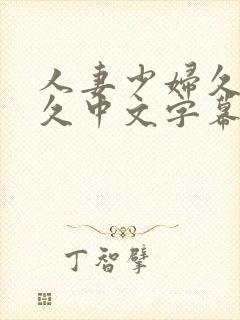 人妻少婦久
久中文字幕
丁智擘